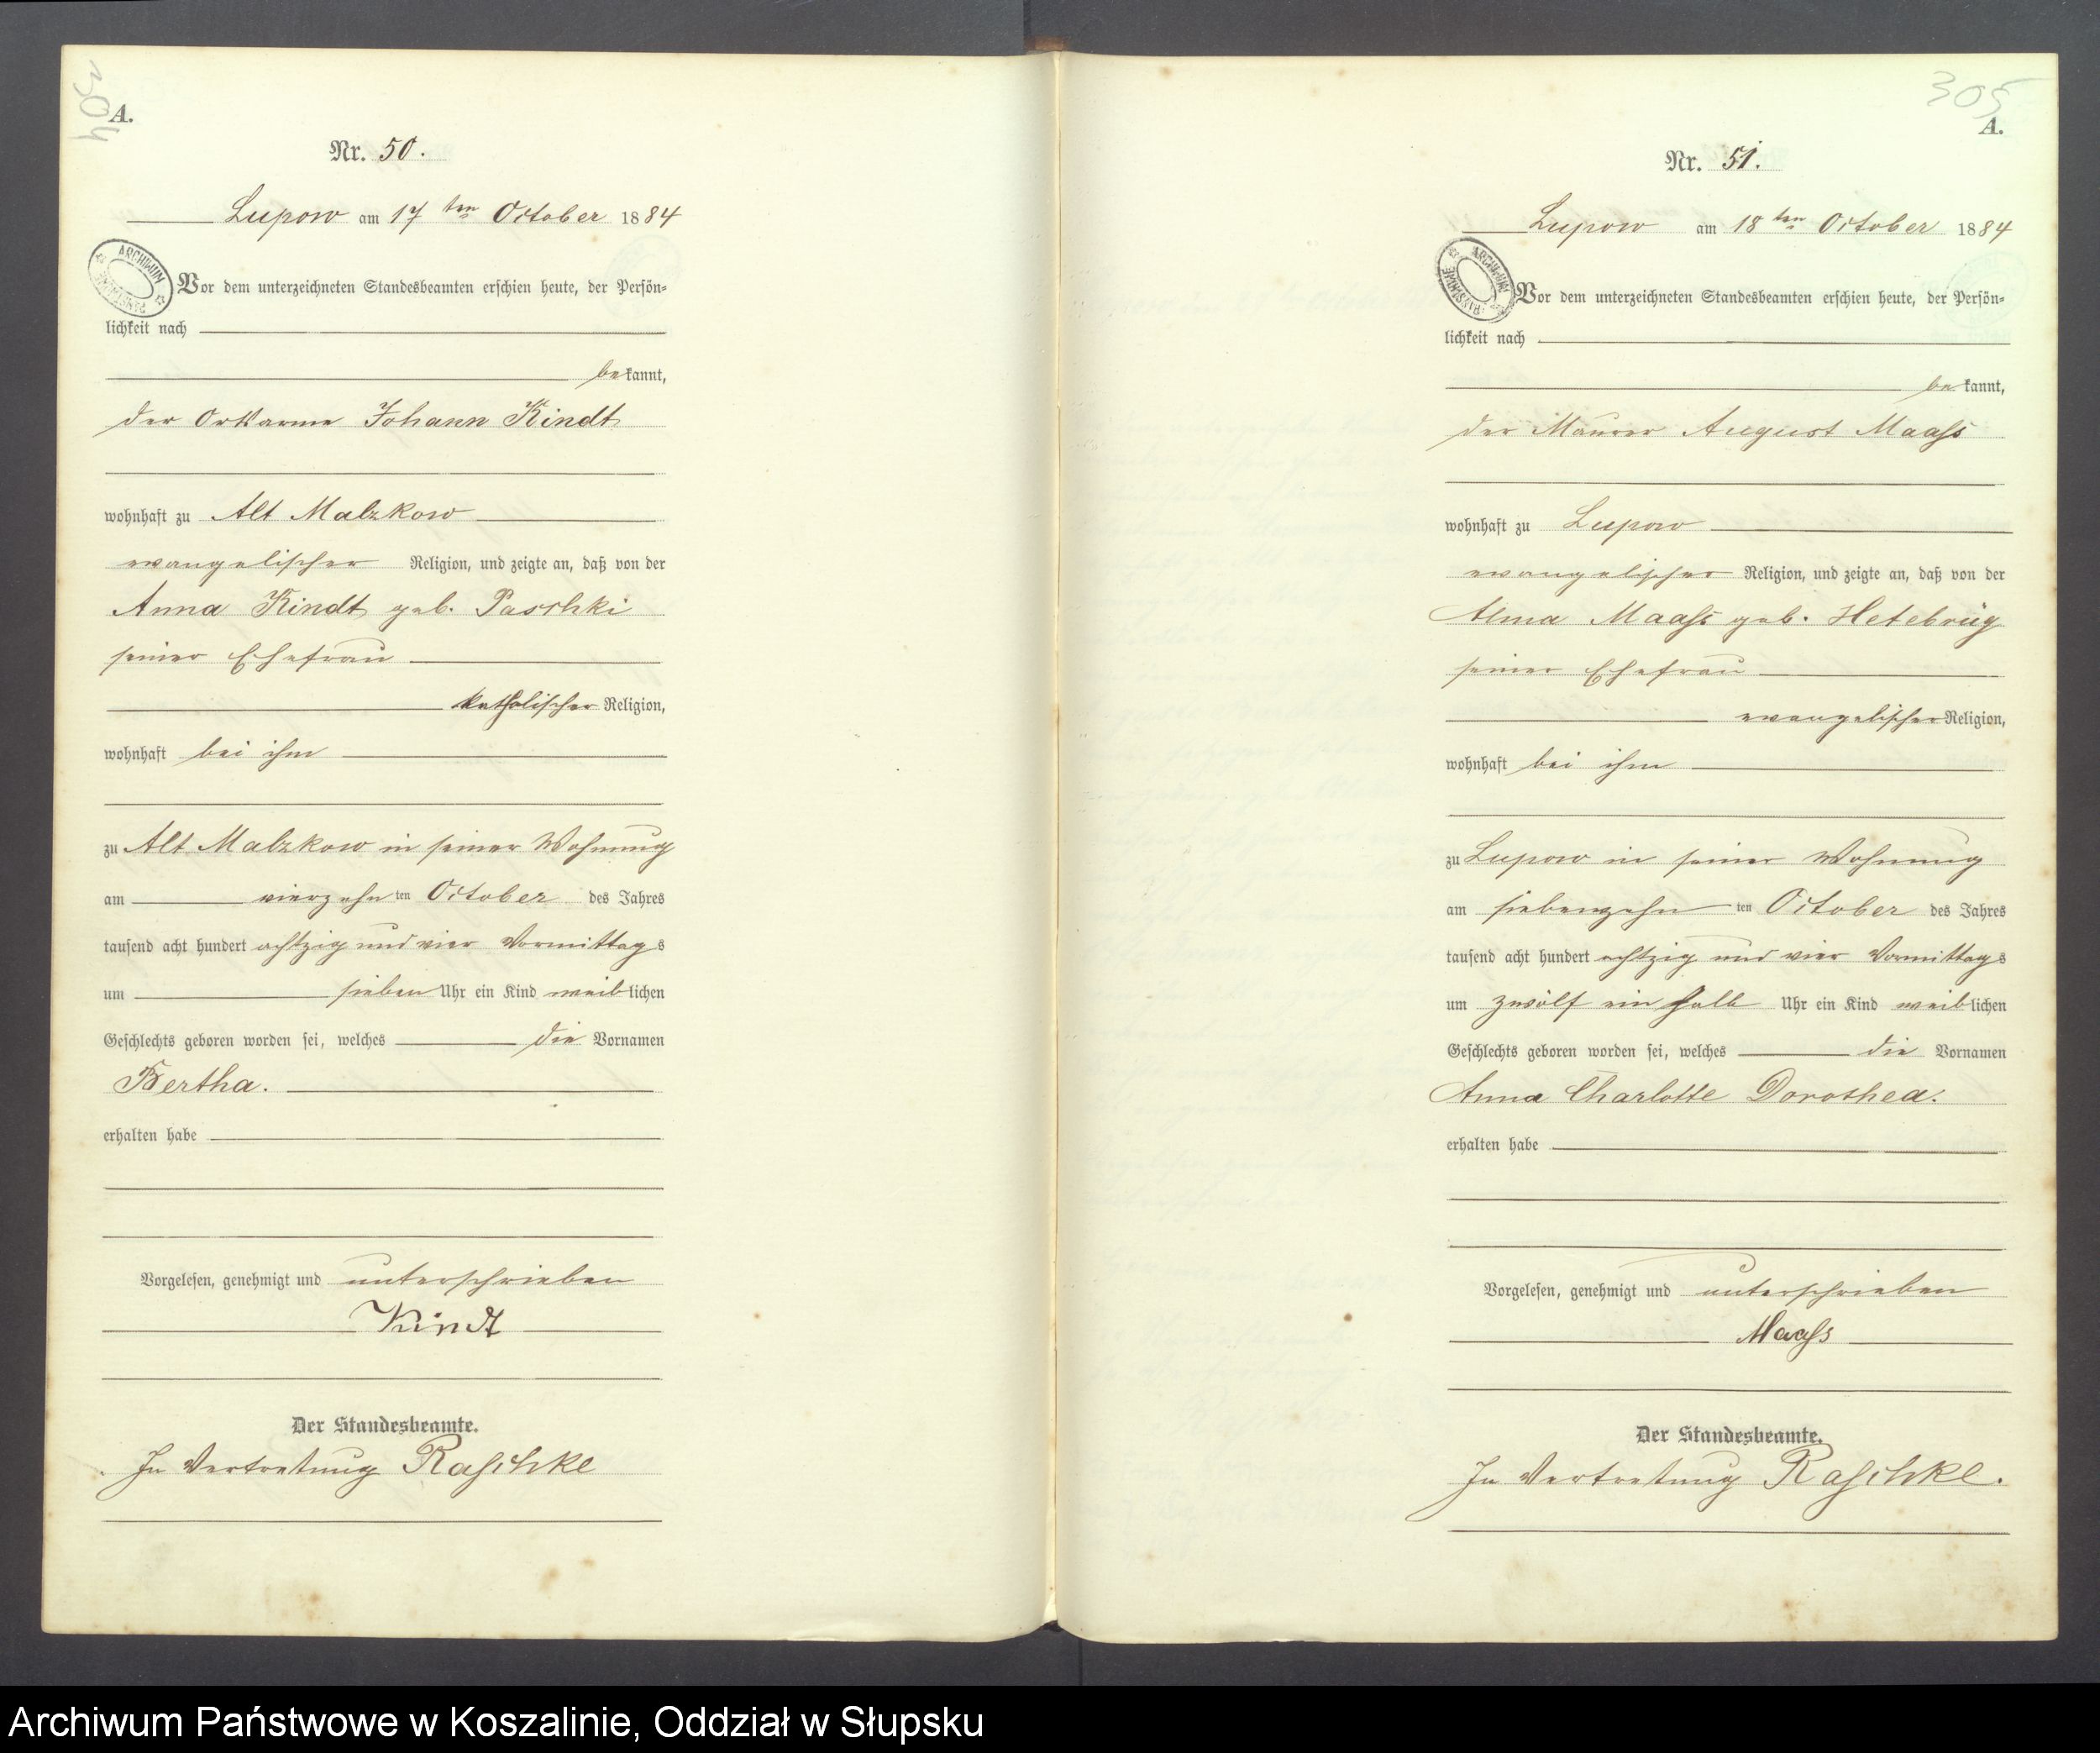 304
A.
Nr. 50.
Lupow am 17ten October 1884
ARCHIWUM
Vor dem unterzeichneten Standesbeamten erschien heute, der Persön=
lichkeit nach
bekannt,
der Ortsarme Johann Kindt
wohnhaft zu Alt Malzkow
evangelischer Religion, und zeigte an, daß von der
Anna Kindt geb. Paschki
seiner Ehefrau
katholischer Religion,
wohnhaft bei ihm
zu Alt Malzkow in seiner Wohnung
am vierzehnten October des Jahres
tausend acht hundert achtzig und vier Vormittags
um sieben Uhr ein Kind weiblichen
Geschlechts geboren worden sei, welches die Vornamen
Bertha.
erhalten habe
Vorgelesen, genehmigt und unterschrieben
Kindt
Der Standesbeamte.
In Vertretung Raschke
305
A.
Nr. 51.
Lupow am 18ten October 1884
ARCHIWUM
Vor dem unterzeichneten Standesbeamten erschien heute, der Persön=
lichkeit nach
bekannt,
der Maurer August Maaß
wohnhaft zu Lupow
evangelischer Religion, und zeigte an, daß von der
Alma Maaß geb. Hetebrüg
seiner Ehefrau
evangelischer Religion,
wohnhaft bei ihm
zu Lupow in seiner Wohnung
am siebenzehnten October des Jahres
tausend acht hundert achtzig und vier Vormittags
um zwölf ein halb Uhr ein Kind weiblichen
Geschlechts geboren worden sei, welches die Vornamen
Anna Charlotte Dorothea.
erhalten habe
Vorgelesen, genehmigt und unterschrieben
Maaß
Der Standesbeamte.
In Vertretung Raschke.
Archiwum Państwowe w Koszalinie, Oddział w Słupsku